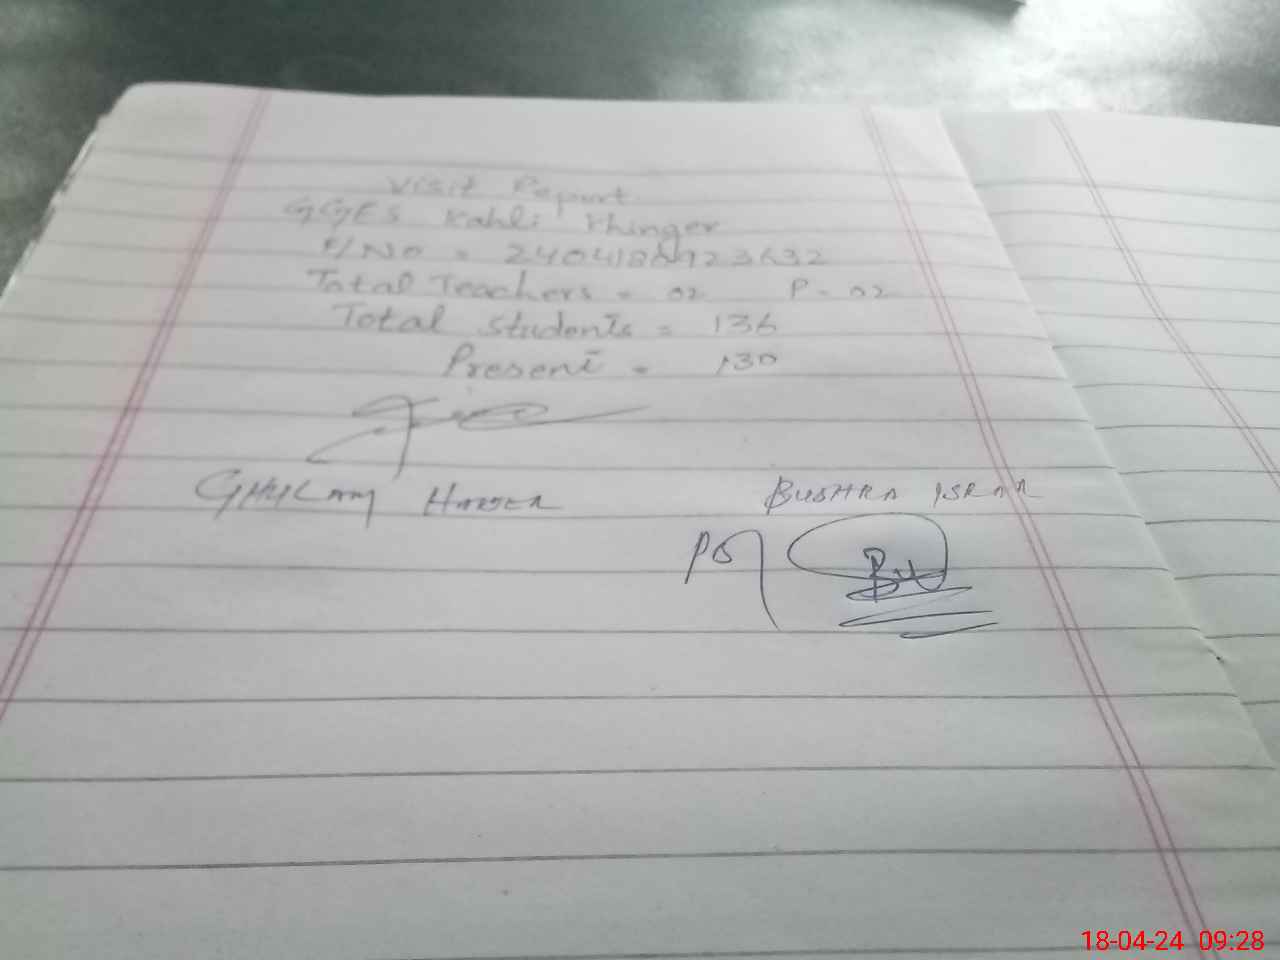 Visit Report
GGES Kahli Thinger
F/No = 2404180923632
Total Teachers = 02 P - 02
Total students = 136
Present = 130
GHULAM
BUSHRA ISRAR
BU
18-04-24 09:28